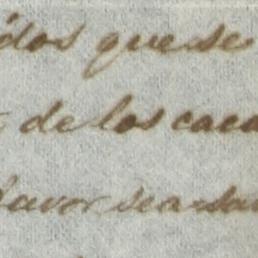 dos que se
de los caca
favor sea sa